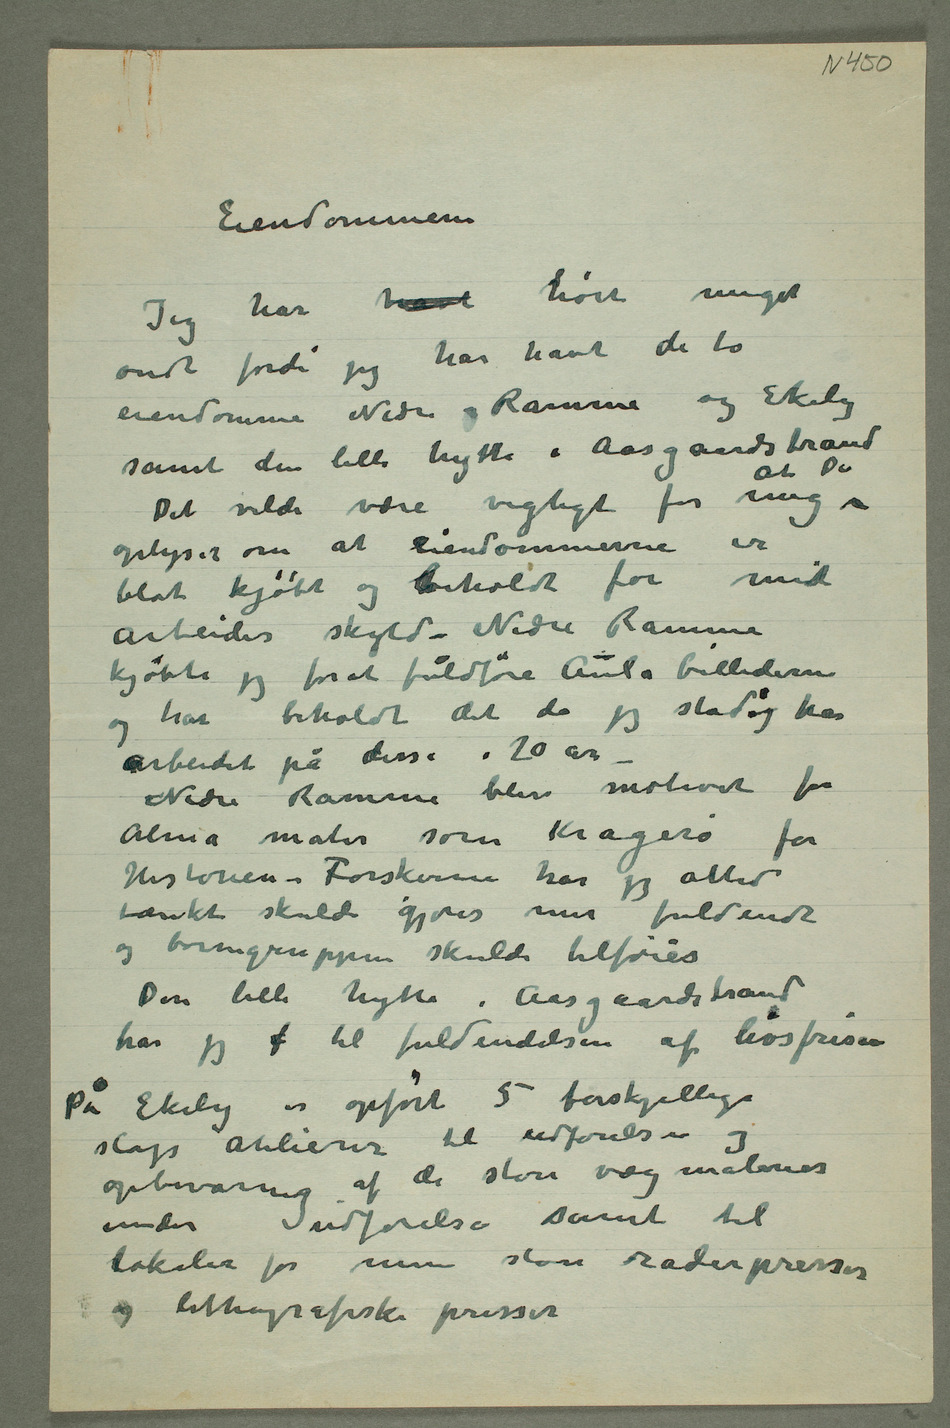 N450
Eiendommene
Jeg har havt hört meget
ondt fordi jeg har havt de to
eiendomme Nedre Ramme og Ekely
samt den lille hytte i Aasgaardstrand
Det vilde være vigtigt for mig at De
oplyser om at eiendommerne er
blot kjöbt og beholdt for mit
arbeides skyld – Nedre Ramme
kjöbte jeg forat fuldföre Aula billederne
og har beholdt det da jeg stadig har
arbeidet på disse i 20 år –
Nedre Ramme blev motivet for
Alma mater som Kragerö for
Historien – Forskerne har jeg altid
tænkt skulde gjöres mer fuldendt
og börnegruppen skulde tilföies
Den lille hytte i Aasgaardstrand
har jeg f til fuldendelsen af livsfrisen
På Ekely er opfört 5 forskjellige
slags atelierer til udförelsen og
opbevaring af de store vægmalerier
under udförelse samt til
lokaler for mine store raderpresser
og lithografiske presser